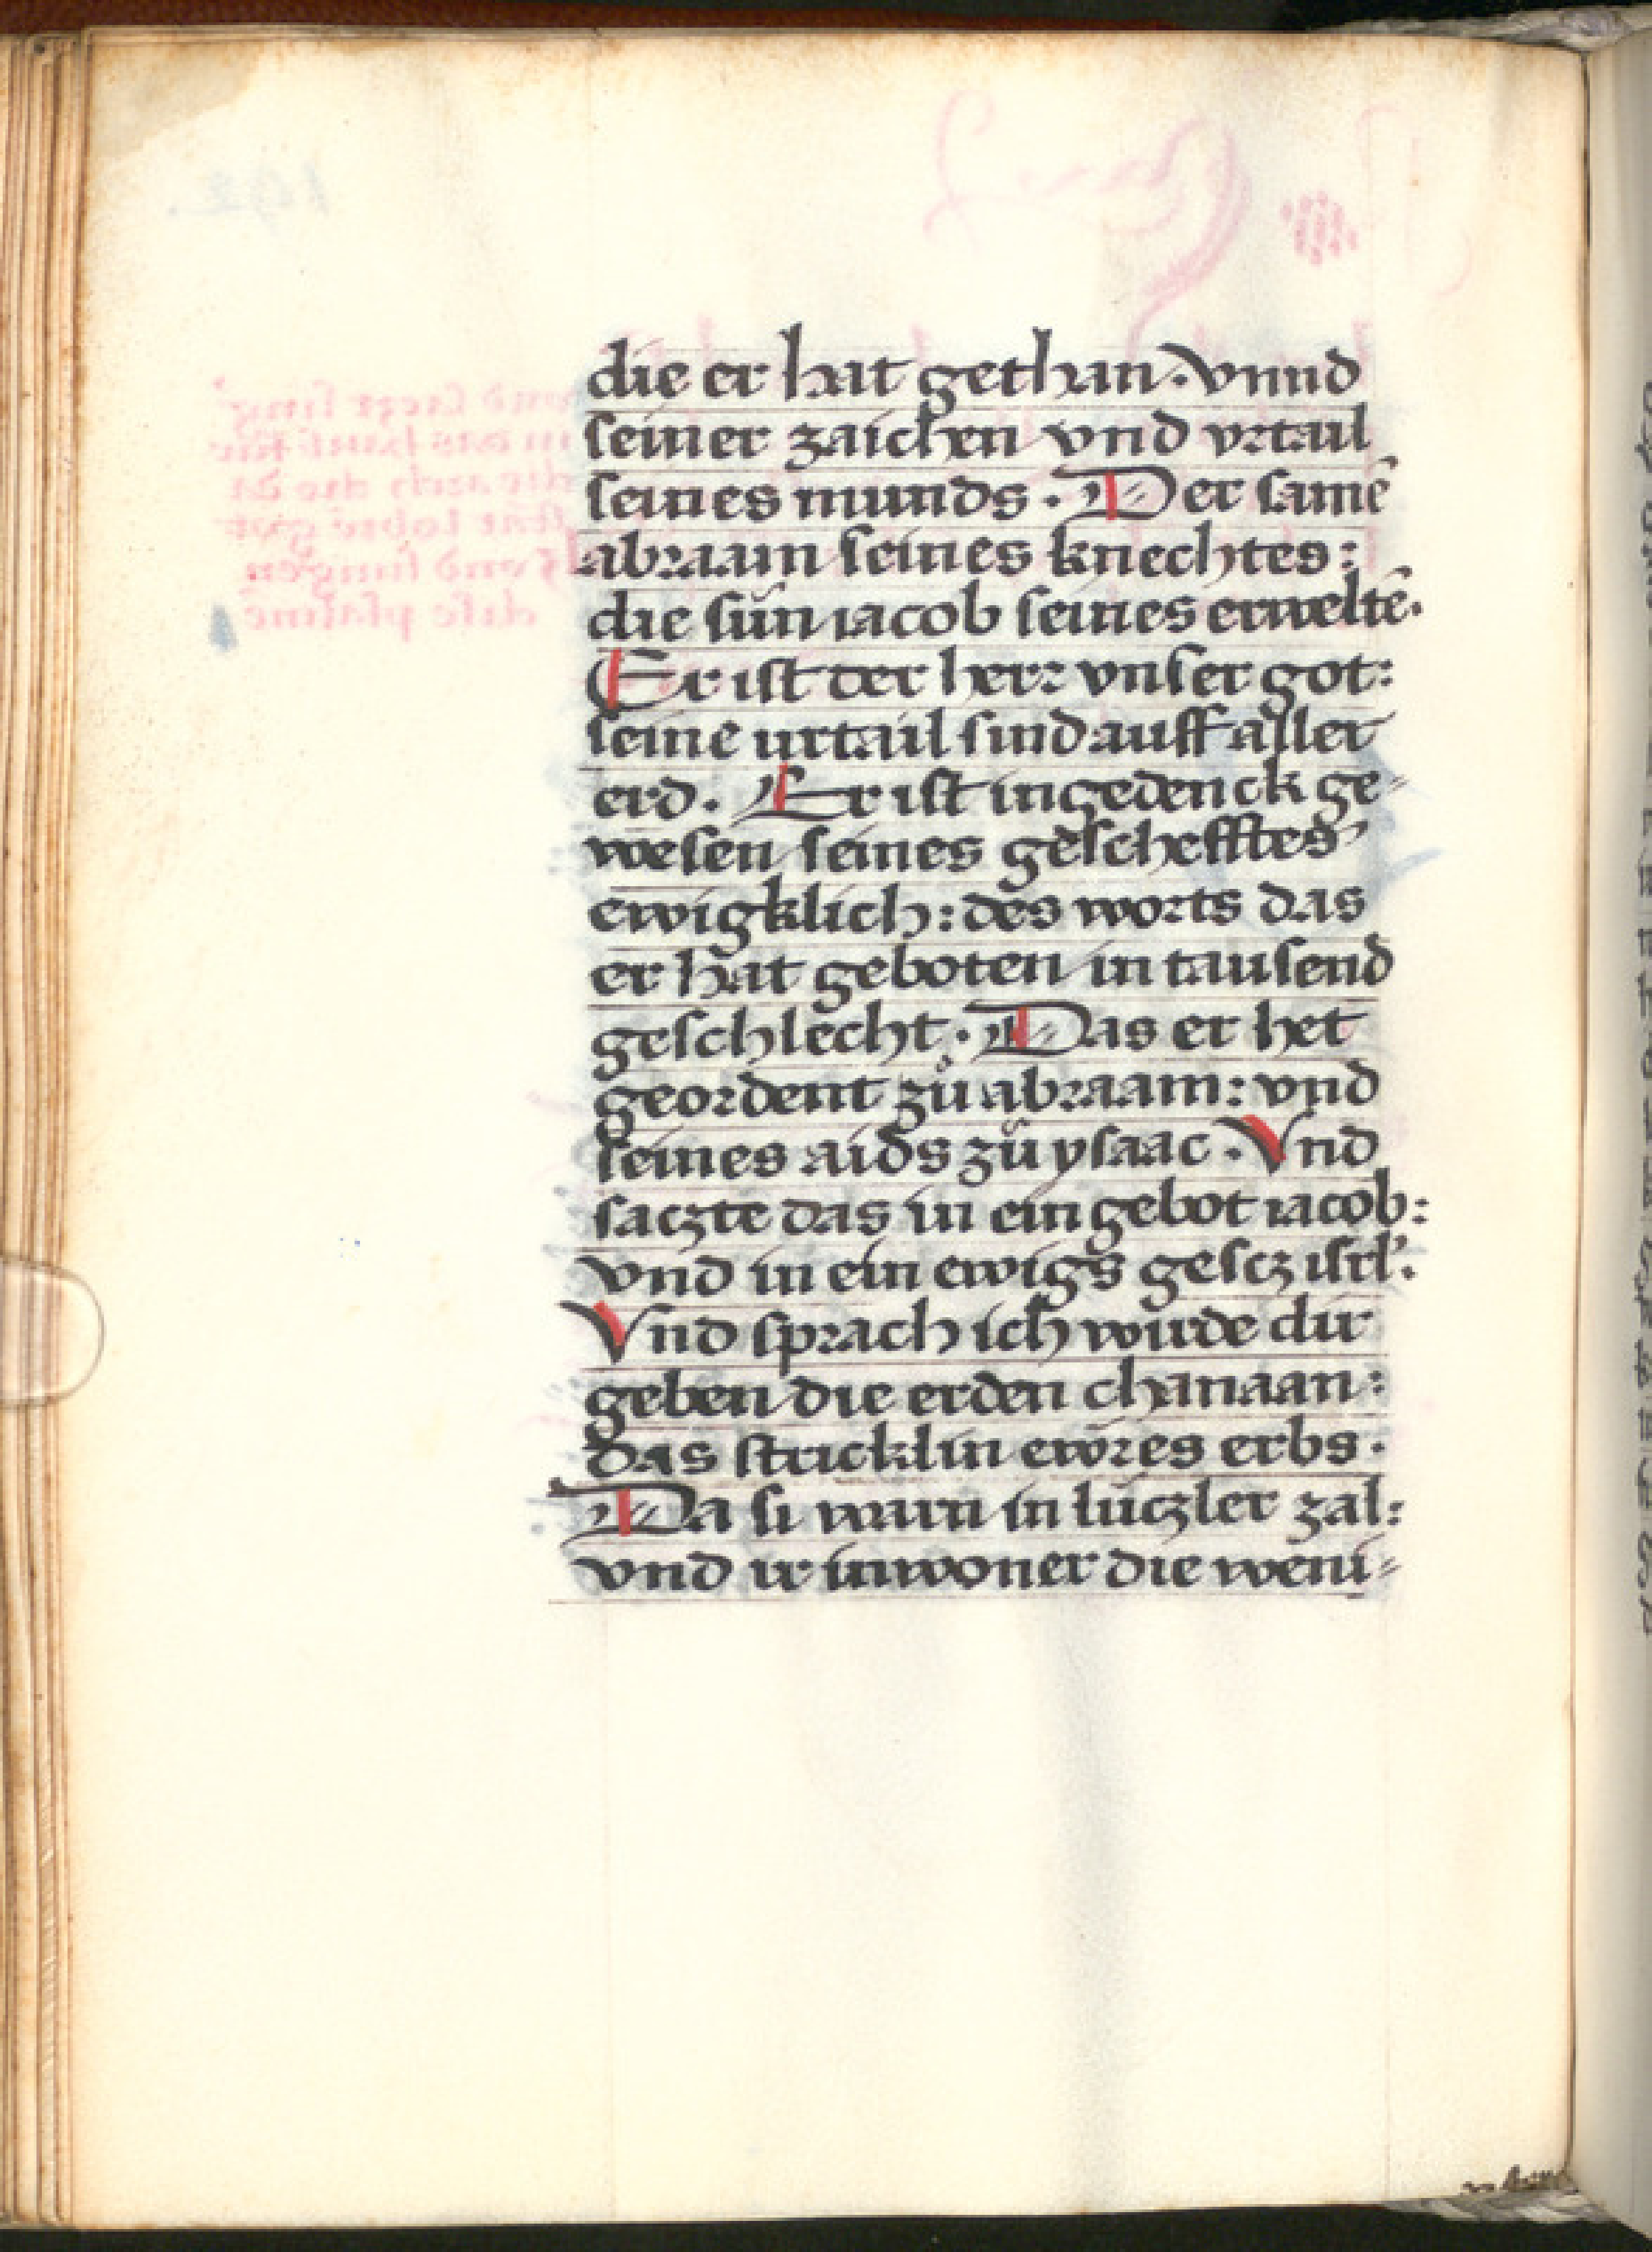 die er hat gethan · vnnd
seiner zaichen vnd vrtail
seines munds · Der samē
abraam seines knechtes :
die sün iacob seines erweltē ·
Er ist der herr vnser got :
seine urtail sind auff aller
erd · Er ist ingedenck ge-
wesen seines geschefftes
ewigklich : des worts das
er hat geboten in tausend
geschlecht · Das er het
geordent zů abraam : vnd
seines aids zů ysaac · Vnd
saczte das in ein gebot iacob :
vnd in ein ewigs gesecz isrl' :
Vnd sprach ich wirde dir
geben die erden chanaan :
das stricklin ewres erbs ·
Da si warn in lüczler zal :
vnd ir inwoner die weni-